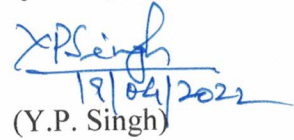 YPSingh
18/04/2022
(Y.P. Singh)